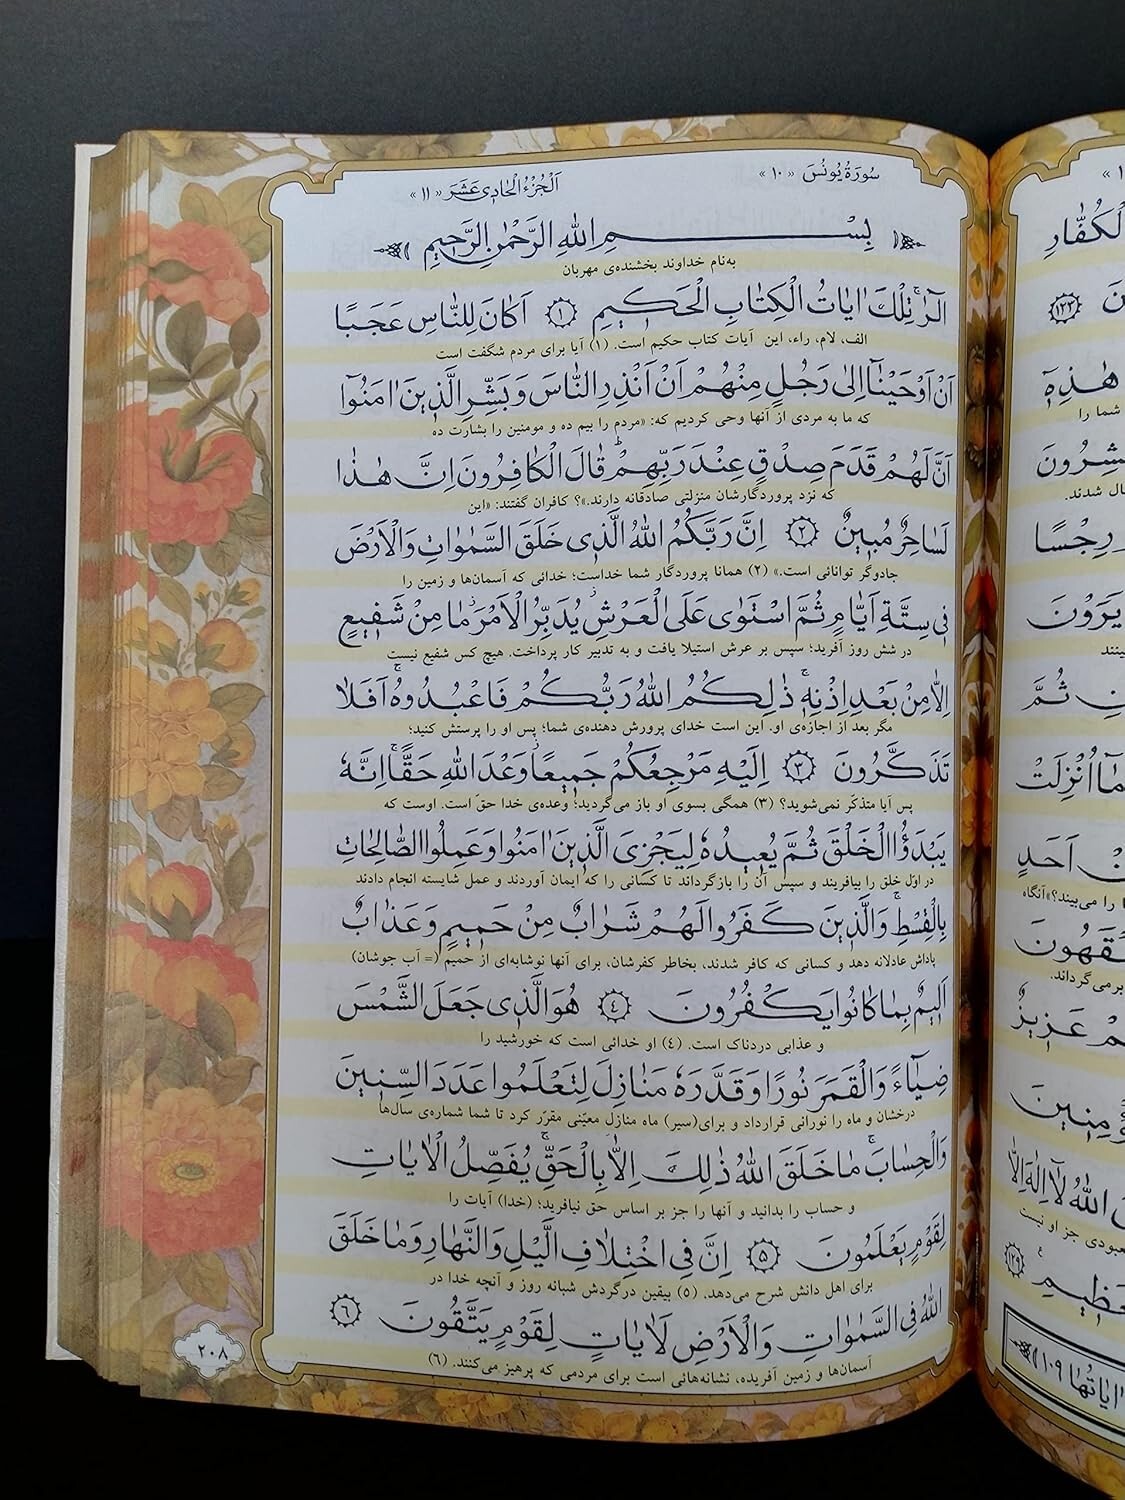 سُورَةُ يُونُسَ « ١٠ »
اَلْجُزْءُ الْحَادِي عَشَرَ « ١١ »
بِسْمِ اللّٰهِ الرَّحْمٰنِ الرَّحِيمِ
به‌نام خداوند بخشنده‌ی مهربان
الٓرٰ تِلْكَ اٰيَاتُ الْكِتَابِ الْحَكِيمِ ١ اَكَانَ لِلنَّاسِ عَجَبًا
الف، لام، راء، این آیات کتاب حکیم است. (١) آیا برای مردم شگفت است
اَنْ اَوْحَيْنَٓا اِلٰى رَجُلٍ مِنْهُمْ اَنْ اَنْذِرِ النَّاسَ وَ بَشِّرِ الَّذِينَ اٰمَنُوٓا
که ما به مردی از آنها وحی کردیم که: «مردم را بیم ده و مومنین را بشارت ده
اَنَّ لَهُمْ قَدَمَ صِدْقٍ عِنْدَ رَبِّهِمْ قَالَ الْكَافِرُونَ اِنَّ هٰذَا
که نزد پروردگارشان منزلتی صادقانه دارند.»؟ کافران گفتند: «این
لَسَاحِرٌ مُبِينٌ ٢ اِنَّ رَبَّكُمُ اللّٰهُ الَّذِي خَلَقَ السَّمٰوَاتِ وَالْاَرْضَ
جادوگر توانائی است.» (٢) همانا پروردگار شما خداست؛ خدائی که آسمان‌ها و زمین را
فِي سِتَّةِ اَيَّامٍ ثُمَّ اسْتَوٰى عَلَى الْعَرْشِ يُدَبِّرُ الْاَمْرَ مَا مِنْ شَفِيعٍ
در شش روز آفرید؛ سپس بر عرش استیلا یافت و به تدبیر کار پرداخت. هیچ کس شفیع نیست
اِلَّا مِنْ بَعْدِ اِذْنِهِ ذٰلِكُمُ اللّٰهُ رَبُّكُمْ فَاعْبُدُوهُ اَفَلَا
مگر بعد از اجازه‌ی او. این است خدای پرورش دهنده‌ی شما؛ پس او را پرستش کنید؛
تَذَكَّرُونَ ٣ اِلَيْهِ مَرْجِعُكُمْ جَمِيعًا وَعْدَ اللّٰهِ حَقًّا اِنَّهُ
پس آیا متذکّر نمی‌شوید؟ (٣) همگی بسوی او باز می‌گردید؛ وعده‌ی خدا حقّ است. اوست که
يَبْدَؤُا الْخَلْقَ ثُمَّ يُعِيدُهُ لِيَجْزِيَ الَّذِينَ اٰمَنُوا وَعَمِلُوا الصَّالِحَاتِ
در اوّل خلق را بیافریند و سپس آن را بازگرداند تا کسانی را که ایمان آوردند و عمل شایسته انجام دادند
بِالْقِسْطِ وَالَّذِينَ كَفَرُوا لَهُمْ شَرَابٌ مِنْ حَمِيمٍ وَ عَذَابٌ
پاداش عادلانه دهد و کسانی که کافر شدند، بخاطر کفرشان، برای آنها نوشابه‌ای از حمیم (= آب جوشان)
اَلِيمٌ بِمَا كَانُوا يَكْفُرُونَ ٤ هُوَ الَّذِي جَعَلَ الشَّمْسَ
و عذابی دردناک است. (٤) او خدائی است که خورشید را
ضِيَٓاءً وَالْقَمَرَ نُورًا وَقَدَّرَهُ مَنَازِلَ لِتَعْلَمُوا عَدَدَ السِّنِينَ
درخشان و ماه را نورانی قرارداد و برای(سیر) ماه منازل معیّنی مقرّر کرد تا شما شماره‌ی سال‌ها
وَالْحِسَابَ مَا خَلَقَ اللّٰهُ ذٰلِكَ اِلَّا بِالْحَقِّ يُفَصِّلُ الْاٰيَاتِ
و حساب را بدانید و آنها را جز بر اساس حق نیافرید؛ (خدا) آیات را
لِقَوْمٍ يَعْلَمُونَ ٥ اِنَّ فِي اخْتِلَافِ الَّيْلِ وَالنَّهَارِ وَمَا خَلَقَ
برای اهل دانش شرح می‌دهد. (٥) بیقین درگردش شبانه روز و آنچه خدا در
اللّٰهُ فِي السَّمٰوَاتِ وَالْاَرْضِ لَاٰيَاتٍ لِقَوْمٍ يَتَّقُونَ ٦
آسمان‌ها و زمین آفریده، نشانه‌هائی است برای مردمی که پرهیز می‌کنند. (٦)
٢٠٨
الْكُفَّارِ
١٢٣
هٰذِهِ
شما را
رِجْسًا
يَرَوْنَ
ثُمَّ
مَٓا اُنْزِلَتْ
اَحَدٍ
را می‌بیند؟» آنگاه
برمی‌گرداند.
عَزِيزٌ
اللّٰهُ لَٓا اِلٰهَ اِلَّا
معبودی جز او نیست
١٢٩
اٰيَاتُهَا ١٠٩